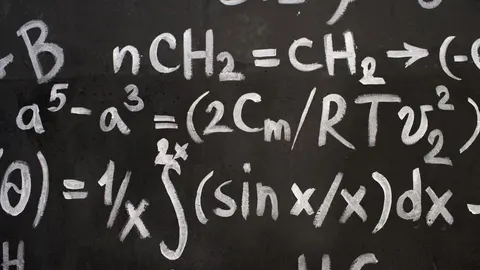 B nCH₂ = CH₂ → (-
a⁵ - a³ = (2Cm/RTv₂²)
(θ) = 1/x ∫²ˣ (sin x/x)dx -
H HC